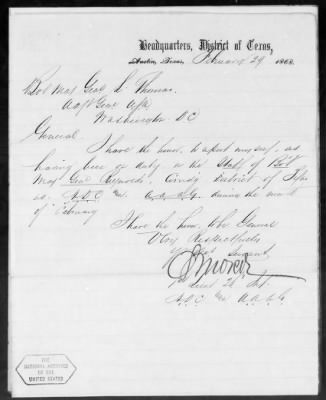 Headquarters, District of Texas,
Austin, Texas, February 29 1868.
Bvt Maj Genl L. Thomas
Adjt Genl USA
Washington DC
General
I have the honor to report myself as
having been on duty on the Staff of Bvt
Maj Genl Reynolds. Comdg District of Texas
as A.D.C. and A.A.A.G. during the month
of February
I have the honor to be General
Very Respectfully
Your obt Servant
1st Lieut 26 Inf.
A.D.C. and A.A.A.G.
THE
NATIONAL ARCHIVES
OF THE
UNITED STATES